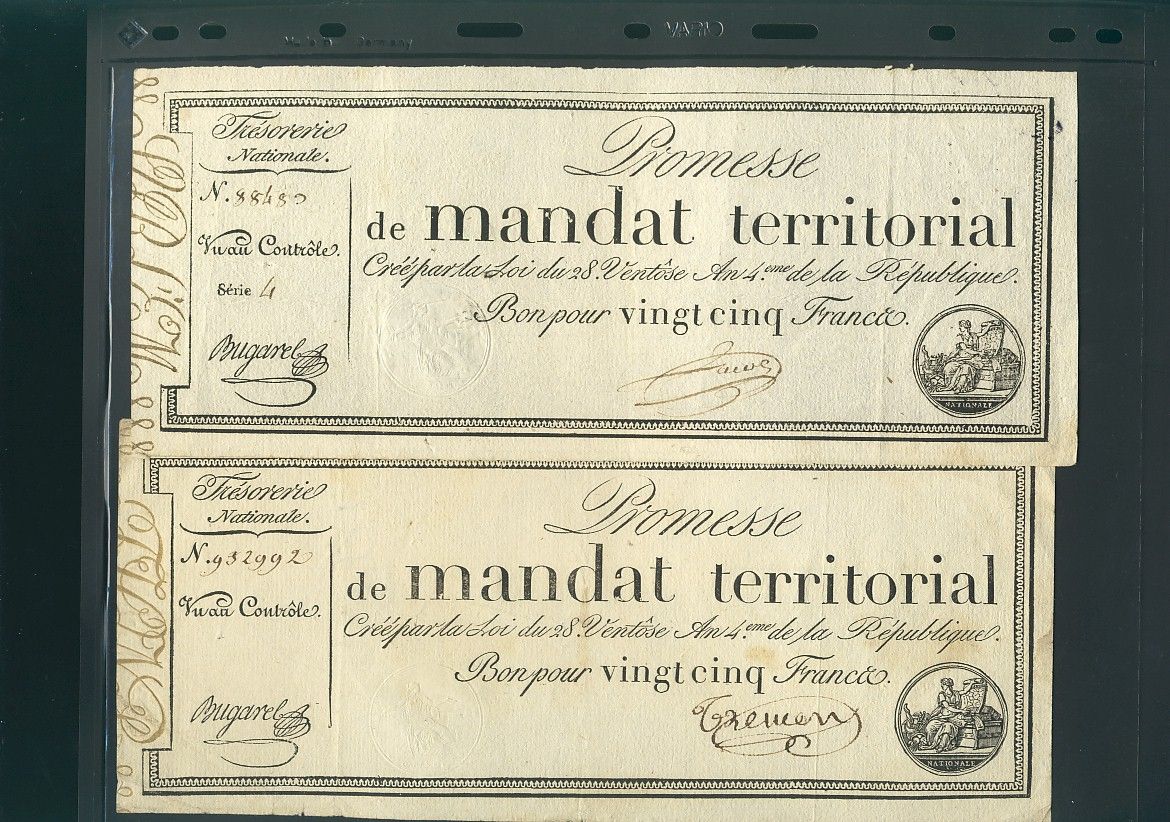 VARIO
Germany
Trésorerie
Nationale.
N. 88480
Vu au Contrôle.
Série 4
Bugarel
Promesse
de mandat territorial
Créé par la Loi du 28. Ventôse An 4.eme de la République.
Bon pour vingt cinq Francs.
NATIONALE
Trésorerie
Nationale.
N. 932992
Vu au Contrôle.
Bugarel
Promesse
de mandat territorial
Créé par la Loi du 28. Ventôse An 4.eme de la République.
Bon pour vingt cinq Francs.
NATIONALE